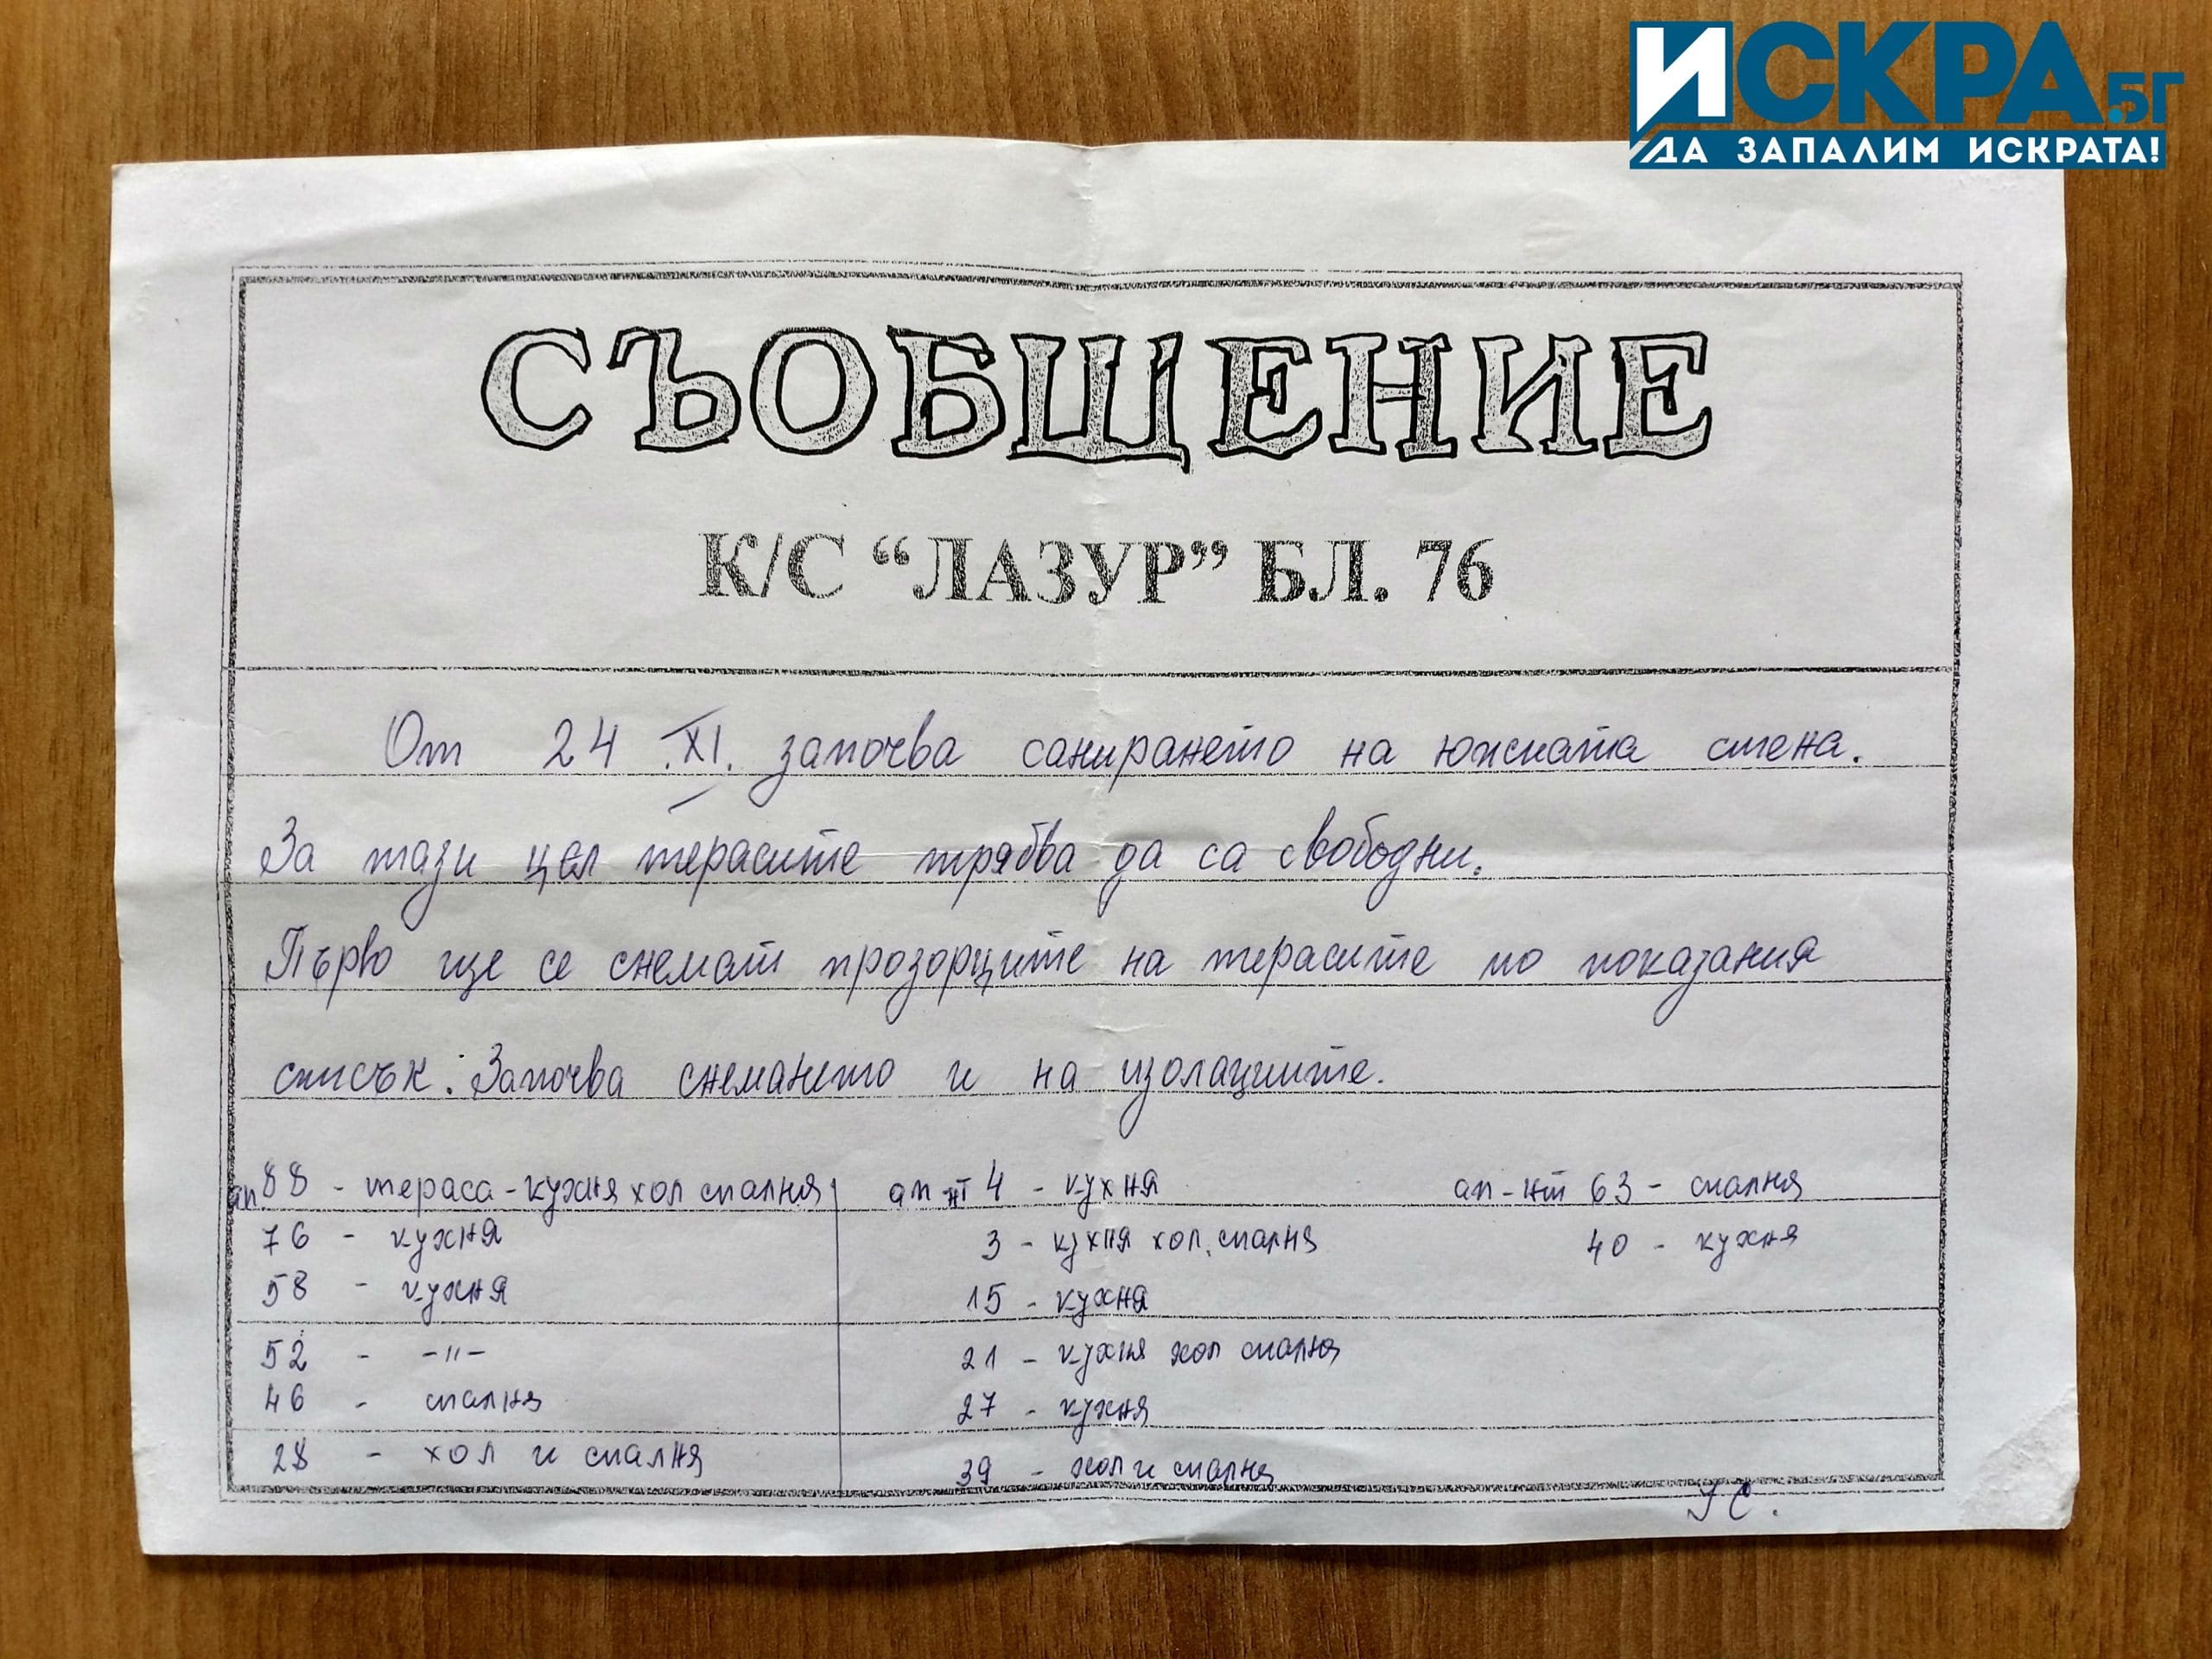 ИСКРА.БГ
ДА ЗАПАЛИМ ИСКРАТА!
СЪОБЩЕНИЕ
К/С “ЛАЗУР” БЛ. 76
От 24.XI. започва санирането на южната стена.
За тази цел терасите трябва да са свободни.
Първо ще се снемат прозорците на терасите по показания
списък. Започва снемането и на изолациите.
ап. 88 - тераса - кухня хол спалня
76 - кухня
58 - кухня
52 - -"-
46 - спалня
28 - хол и спалня
ап-нт 4 - кухня
3 - кухня хол. спалня
15 - кухня
21 - кухня хол спалня
27 - кухня
39 - хол и спалня
ап-нт 63 - спалня
40 - кухня
УС.